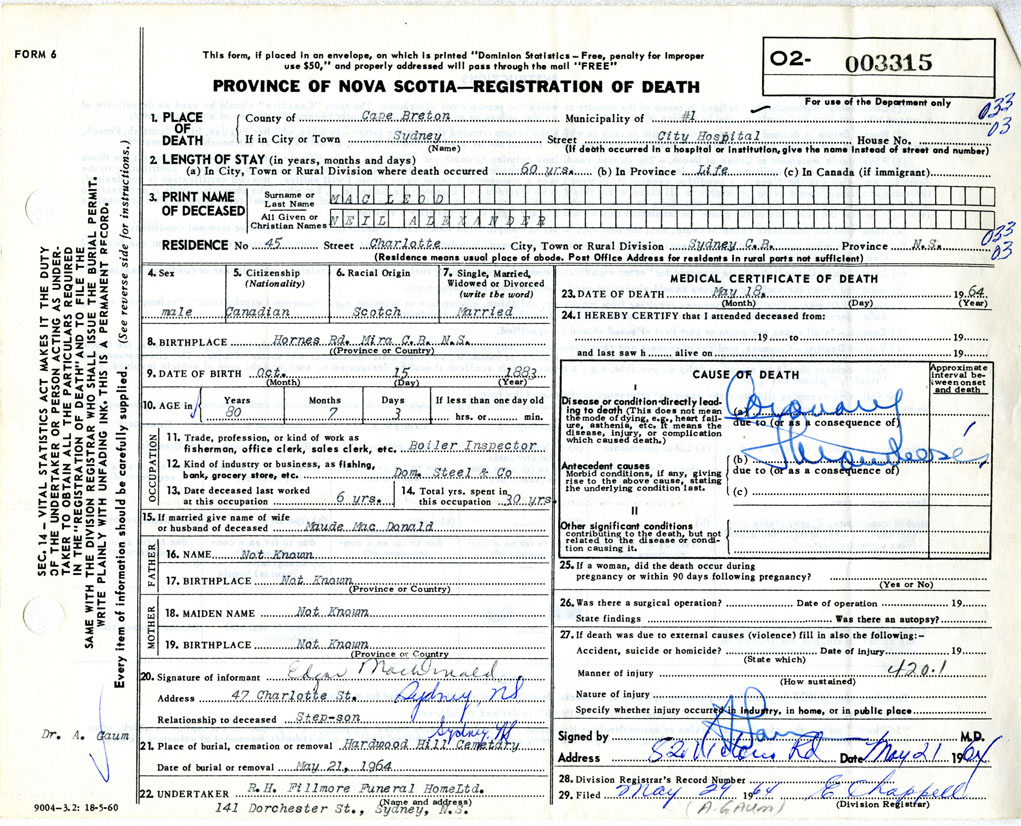 FORM 6
This form, if placed in an envelope, on which is printed "Dominion Statistics – Free, penalty for improper
use $50," and properly addressed will pass through the mail "FREE"
PROVINCE OF NOVA SCOTIA—REGISTRATION OF DEATH
O2- 003315
For use of the Department only
033
03
1. PLACE OF DEATH
County of Cape Breton Municipality of #1
If in City or Town Sydney Street City Hospital House No.
(Name) (If death occurred in a hospital or institution, give the name instead of street and number)
2. LENGTH OF STAY (in years, months and days)
(a) In City, Town or Rural Division where death occurred 60 yrs. (b) In Province Life (c) In Canada (if immigrant)
3. PRINT NAME OF DECEASED
Surname or Last Name MAC LEOD
All Given or Christian Names NEIL ALEXANDER
033
03
RESIDENCE No 45 Street Charlotte City, Town or Rural Division Sydney C.B. Province N.S.
(Residence means usual place of abode. Post Office Address for residents in rural parts not sufficient)
4. Sex
male
5. Citizenship
(Nationality)
Canadian
6. Racial Origin
Scotch
7. Single, Married,
Widowed or Divorced
(write the word)
Married
8. BIRTHPLACE Hornes Rd. Mira C.B. N.S.
((Province or Country)
9. DATE OF BIRTH Oct. 15 1883
(Month) (Day) (Year)
10. AGE in
Years Months Days If less than one day old
80 7 3 hrs. or min.
OCCUPATION
11. Trade, profession, or kind of work as
fisherman, office clerk, sales clerk, etc. Boiler Inspector
12. Kind of industry or business, as fishing,
bank, grocery store, etc. Dom. Steel & Co
13. Date deceased last worked
at this occupation 6 yrs.
14. Total yrs. spent in
this occupation 30 yrs
15. If married give name of wife
or husband of deceased Maude Mac Donald
FATHER
16. NAME Not Known
17. BIRTHPLACE Not Known
(Province or Country)
MOTHER
18. MAIDEN NAME Not Known
19. BIRTHPLACE Not Known
(Province or Country
20. Signature of informant Edgar MacDonald
Address 47 Charlotte St. Sydney, NS
Relationship to deceased Step-son
Sydney NS
21. Place of burial, cremation or removal Hardwood Hill Cemetary
Date of burial or removal May 21, 1964
22. UNDERTAKER R.H. Fillmore Funeral HomeLtd.
(Name and address)
141 Dorchester St., Sydney, N.S.
MEDICAL CERTIFICATE OF DEATH
23. DATE OF DEATH May 18. 1964
(Month) (Day) (Year)
24. I HEREBY CERTIFY that I attended deceased from:
19 to 19
and last saw h alive on 19
CAUSE OF DEATH
Approximate
interval be-
tween onset
and death
I
Disease or condition directly lead-
ing to death (This does not mean
the mode of dying, e.g., heart fail-
ure, asthenia, etc. It means the
disease, injury, or complication
which caused death.)
(a) Coronary
due to (or as a consequence of)
Antecedent causes
Morbid conditions, if any, giving
rise to the above cause, stating
the underlying condition last.
(b) Thrombosis
due to (or as a consequence of)
(c)
II
Other significant conditions
contributing to the death, but not
related to the disease or condi-
tion causing it.
25. If a woman, did the death occur during
pregnancy or within 90 days following pregnancy?
(Yes or No)
26. Was there a surgical operation? Date of operation 19
State findings Was there an autopsy?
27. If death was due to external causes (violence) fill in also the following:–
Accident, suicide or homicide? Date of injury 19
(State which)
Manner of injury 420.1
(How sustained)
Nature of injury
Specify whether injury occurred in industry, in home, or in public place
Signed by M.D.
Address 520 Victoria Rd Date May 21 1964
28. Division Registrar's Record Number
29. Filed May 29 1964 E Chappell
(A. GAUM) (Division Registrar)
SEC. 14 – VITAL STATISTICS ACT MAKES IT THE DUTY
OF THE UNDERTAKER OR PERSON ACTING AS UNDER-
TAKER TO OBTAIN ALL THE PARTICULARS REQUIRED
IN THE "REGISTRATION OF DEATH" AND TO FILE THE
SAME WITH THE DIVISION REGISTRAR WHO SHALL ISSUE THE BURIAL PERMIT.
WRITE PLAINLY WITH UNFADING INK. THIS IS A PERMANENT RECORD.
Every item of information should be carefully supplied. (See reverse side for instructions.)
Dr. A. Gaum
9004-3.2: 18-5-60